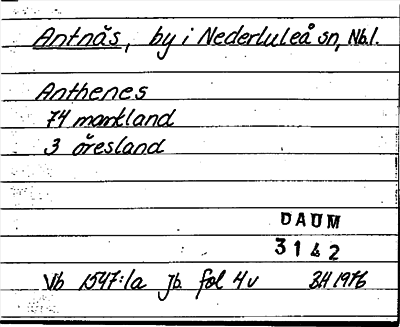 Antnäs, by i Nederluleå sn, Nb.l.
Anthenes
74 markland
3 öresland
DAUM
3142
Vb 1547:1a Jb. fol 4v BH 1976